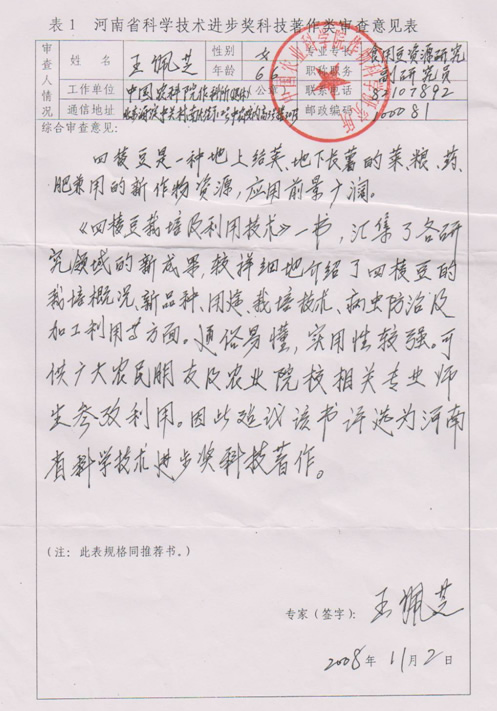 表1 河南省科学技术进步奖科技著作类审查意见表
审查人情况
姓名 王佩芝 性别 女 专业专长 食用豆资源研究
年龄 66 职称职务 副研究员
工作单位 中国农科院作科所 (公章) 联系电话 82107892
通信地址 北京海淀中关村南大街12号 邮政编码 100081
综合审查意见:
四棱豆是一种地上结荚、地下长薯的菜、粮、药、
肥兼用的新作物资源,应用前景广阔。
《四棱豆栽培及利用技术》一书,汇集了各研
究领域的新成果,较详细地介绍了四棱豆的
栽培概况、新品种、用途、栽培技术、病虫防治及
加工利用等方面。通俗易懂,实用性较强。可
供广大农民朋友及农业院校相关专业师
生参改利用。因此建议该书评选为河南
省科学技术进步奖科技著作。
(注:此表规格同推荐书。)
专家(签字):王佩芝
2008年11月2日